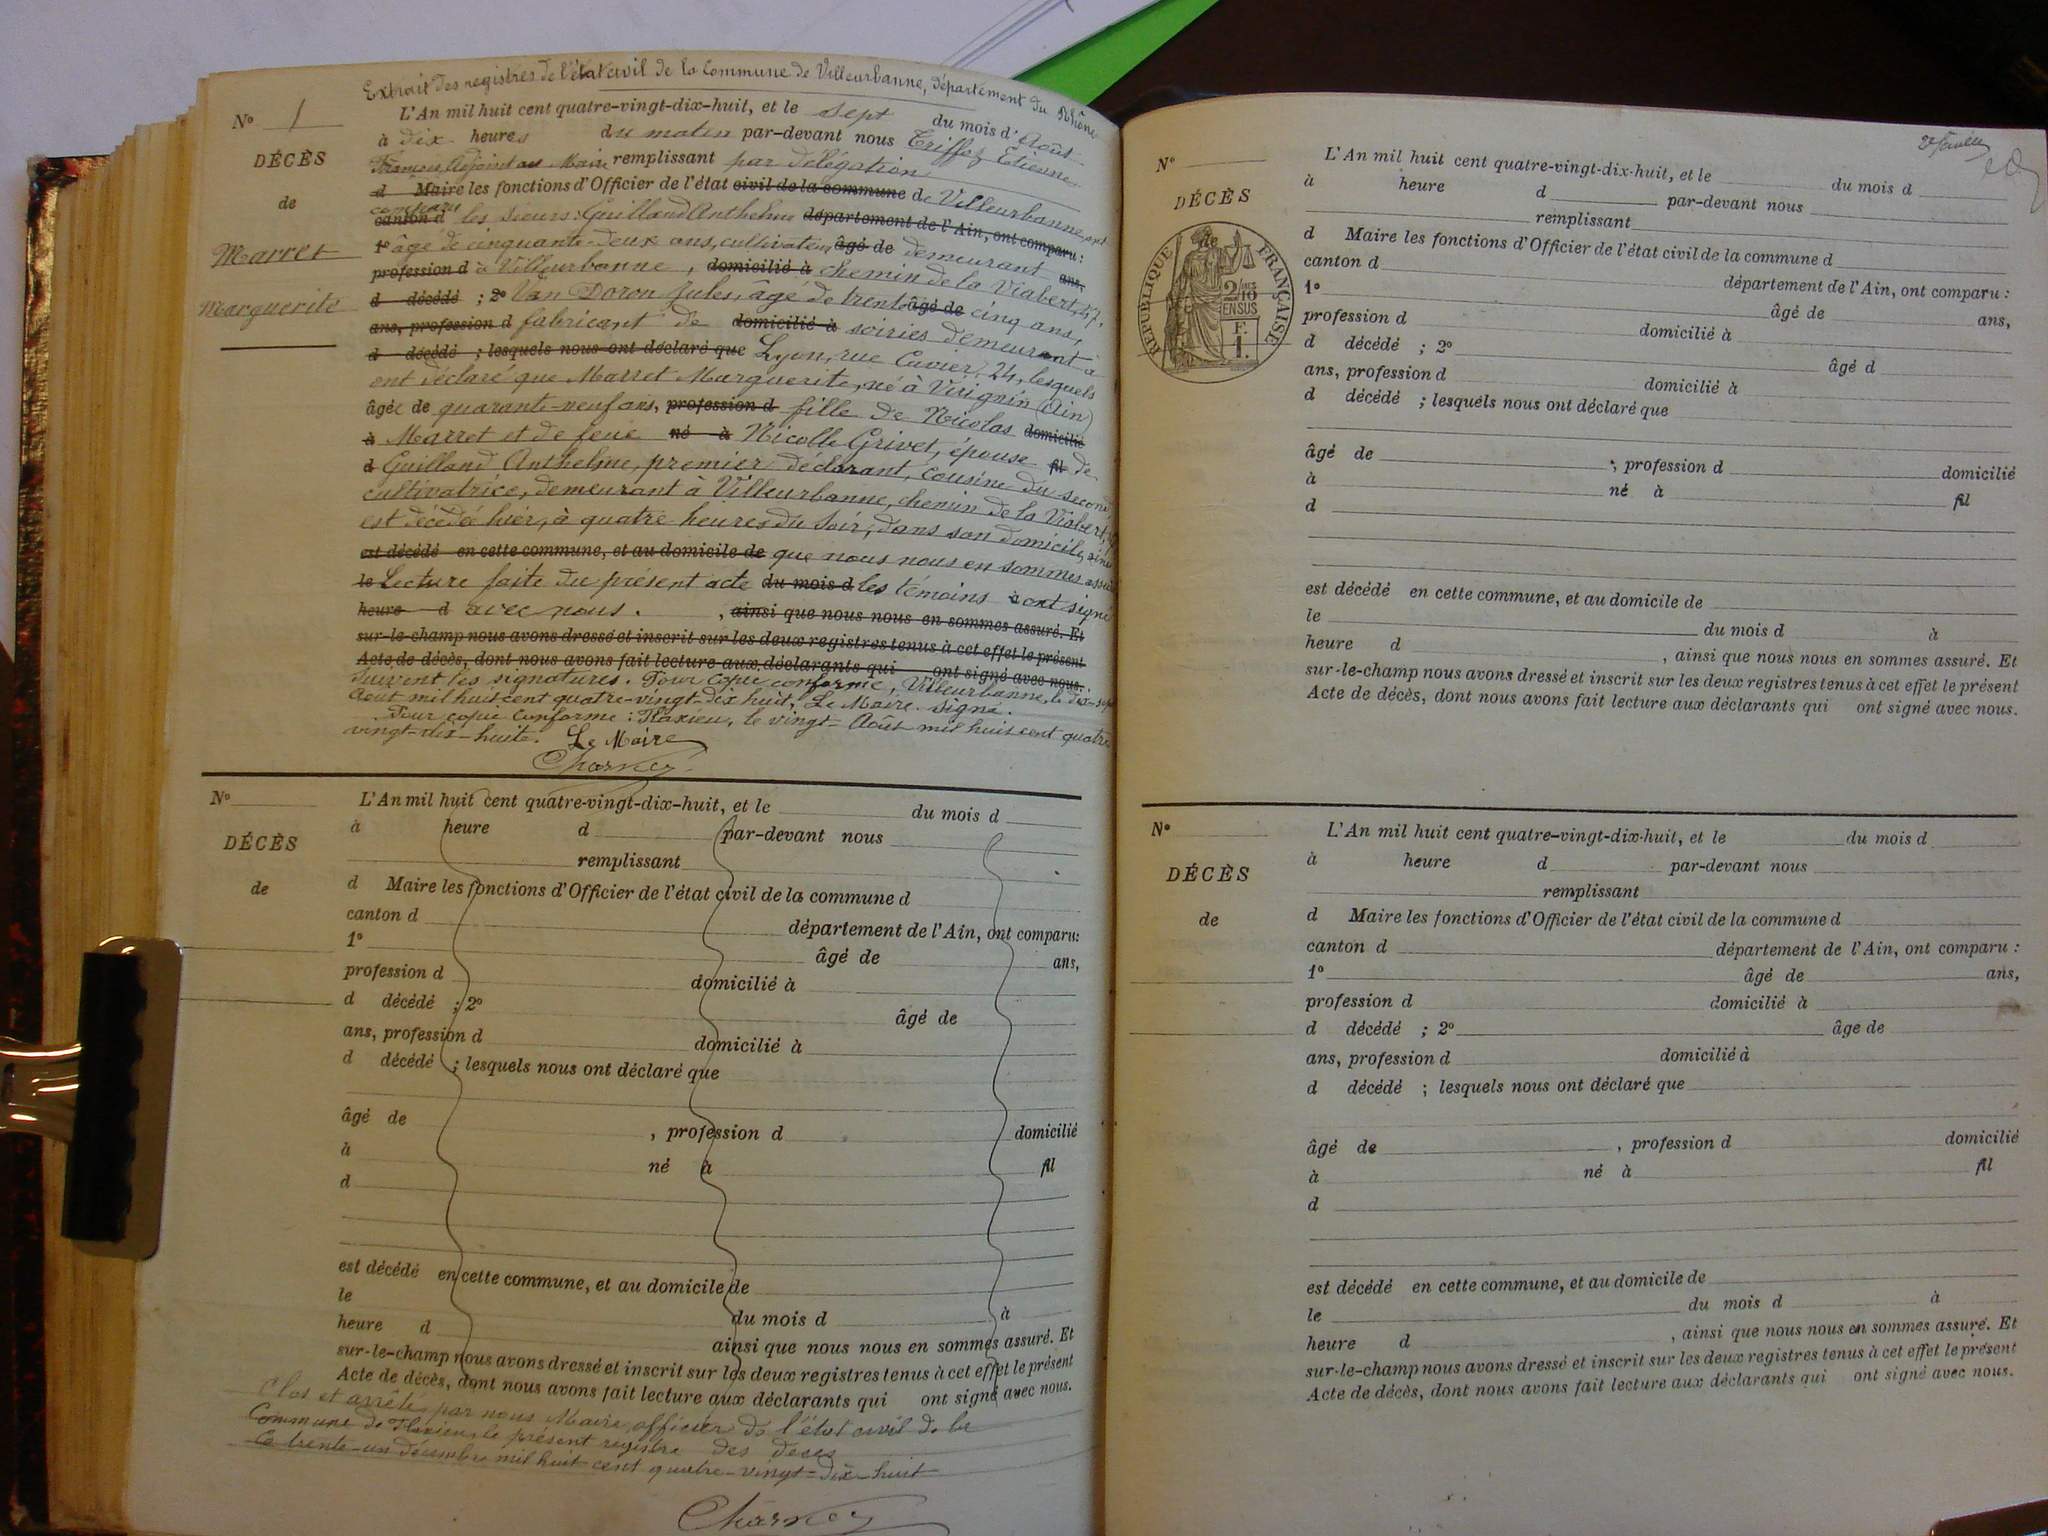 Extrait des registres de l'état civil de la Commune de Villeurbanne, département du Rhône
N° 1
DÉCÈS
de
Marret
Marguerite
L'An mil huit cent quatre-vingt-dix-huit, et le sept du mois d'Août
à dix heures du matin par-devant nous Triffoz Etienne
François, Adjoint au Maire remplissant par délégation
d Maire les fonctions d'Officier de l'état civil de la commune de Villeurbanne, ont
comparu
canton d les sieurs: Guilland Anthelme département de l'Ain, ont comparu:
1° âgé de cinquante-deux ans, cultivateur âgé de demeurant ans,
profession d à Villeurbanne, domicilié à chemin de la Viabert, 47,
d décédé ; 2° Van Doron Jules, âgé de trente âgé de cinq ans,
ans, profession d fabricant de domicilié à soiries demeurant à
d décédé ; lesquels nous ont déclaré que Lyon, rue Cuvier, 24, lesquels
ont déclaré que Marret Marguerite, né à Virignin (Ain)
âgée de quarante-neuf ans, profession d fille de Nicolas domicilié
à Marret et de feue né à Nicolle Grivet, épouse fil de
d Guilland Anthelme, premier déclarant, cousine du second,
cultivatrice, demeurant à Villeurbanne, chemin de la Viabert,
est décédée hier, à quatre heures du soir, dans son domicile, ainsi
est décédé en cette commune, et au domicile de que nous nous en sommes assuré
le Lecture faite du présent acte du mois d les témoins à ont signé
heure d avec nous. , ainsi que nous nous en sommes assuré. Et
sur-le-champ nous avons dressé et inscrit sur les deux registres tenus à cet effet le présent
Acte de décès, dont nous avons fait lecture aux déclarants qui ont signé avec nous.
Suivent les signatures. Pour copie conforme, Villeurbanne, le dix-sept
Août mil huit cent quatre-vingt-dix huit, Le Maire signé.
Pour copie conforme: Flaxieu, le vingt Août mil huit cent quatre
vingt-dix-huite. Le Maire
Charvey
N°
DÉCÈS
de
L'An mil huit cent quatre-vingt-dix-huit, et le du mois d
à heure d par-devant nous
remplissant
d Maire les fonctions d'Officier de l'état civil de la commune d
canton d département de l'Ain, ont comparu:
1° âgé de ans,
profession d domicilié à
d décédé ; 2° âgé de
ans, profession d domicilié à
d décédé ; lesquels nous ont déclaré que
âgé de , profession d domicilié
à né à fil
d
est décédé en cette commune, et au domicile de
le du mois d à
heure d ainsi que nous nous en sommes assuré. Et
sur-le-champ nous avons dressé et inscrit sur les deux registres tenus à cet effet le présent
Acte de décès, dont nous avons fait lecture aux déclarants qui ont signé avec nous.
Clos et arrêté par nous Maire, officier de l'état civil de la
Commune de Flaxieu, le présent registre des deces
Ce trente-un décembre mil huit cent quatre-vingt-dix-huit
Charvey
N°
DÉCÈS
de
RÉPUBLIQUE FRANÇAISE
2/10
EN SUS
F.
1.
L'An mil huit cent quatre-vingt-dix-huit, et le du mois d
à heure d par-devant nous
remplissant
d Maire les fonctions d'Officier de l'état civil de la commune d
canton d département de l'Ain, ont comparu :
1° âgé de ans,
profession d domicilié à
d décédé ; 2° âgé d
ans, profession d domicilié à
d décédé ; lesquels nous ont déclaré que
âgé de , profession d domicilié
à né à fil
d
est décédé en cette commune, et au domicile de
le du mois d à
heure d , ainsi que nous nous en sommes assuré. Et
sur-le-champ nous avons dressé et inscrit sur les deux registres tenus à cet effet le présent
Acte de décès, dont nous avons fait lecture aux déclarants qui ont signé avec nous.
N°
DÉCÈS
de
L'An mil huit cent quatre-vingt-dix-huit, et le du mois d
à heure d par-devant nous
remplissant
d Maire les fonctions d'Officier de l'état civil de la commune d
canton d département de l'Ain, ont comparu :
1° âgé de ans,
profession d domicilié à
d décédé ; 2° âge de
ans, profession d domicilié à
d décédé ; lesquels nous ont déclaré que
âgé de , profession d domicilié
à né à fil
d
est décédé en cette commune, et au domicile de
le du mois d à
heure d , ainsi que nous nous en sommes assuré. Et
sur-le-champ nous avons dressé et inscrit sur les deux registres tenus à cet effet le présent
Acte de décès, dont nous avons fait lecture aux déclarants qui ont signé avec nous.